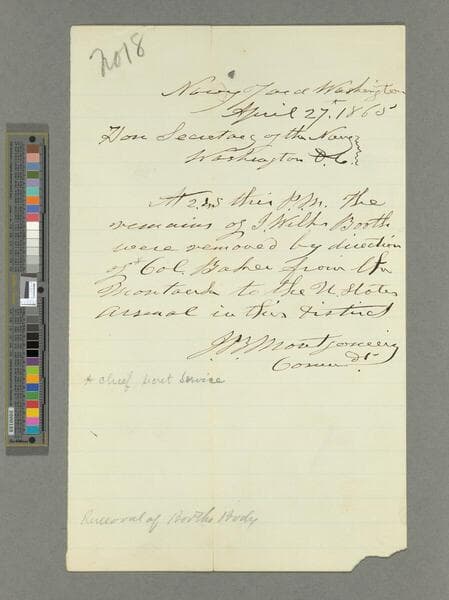 2018
Navy Yard Washington
April 27th 1865
Hon Secretary of the Navy
Washington D.C.
At 2.45 this P.M. the
remains of J. Wilks Booth
were removed by direction
of * Col. Baker from the
Montauk to the U. States
Arsenal in this District
J B Montgomery
Comm dt.
* Chief Secret Service
Removal of Booths Body